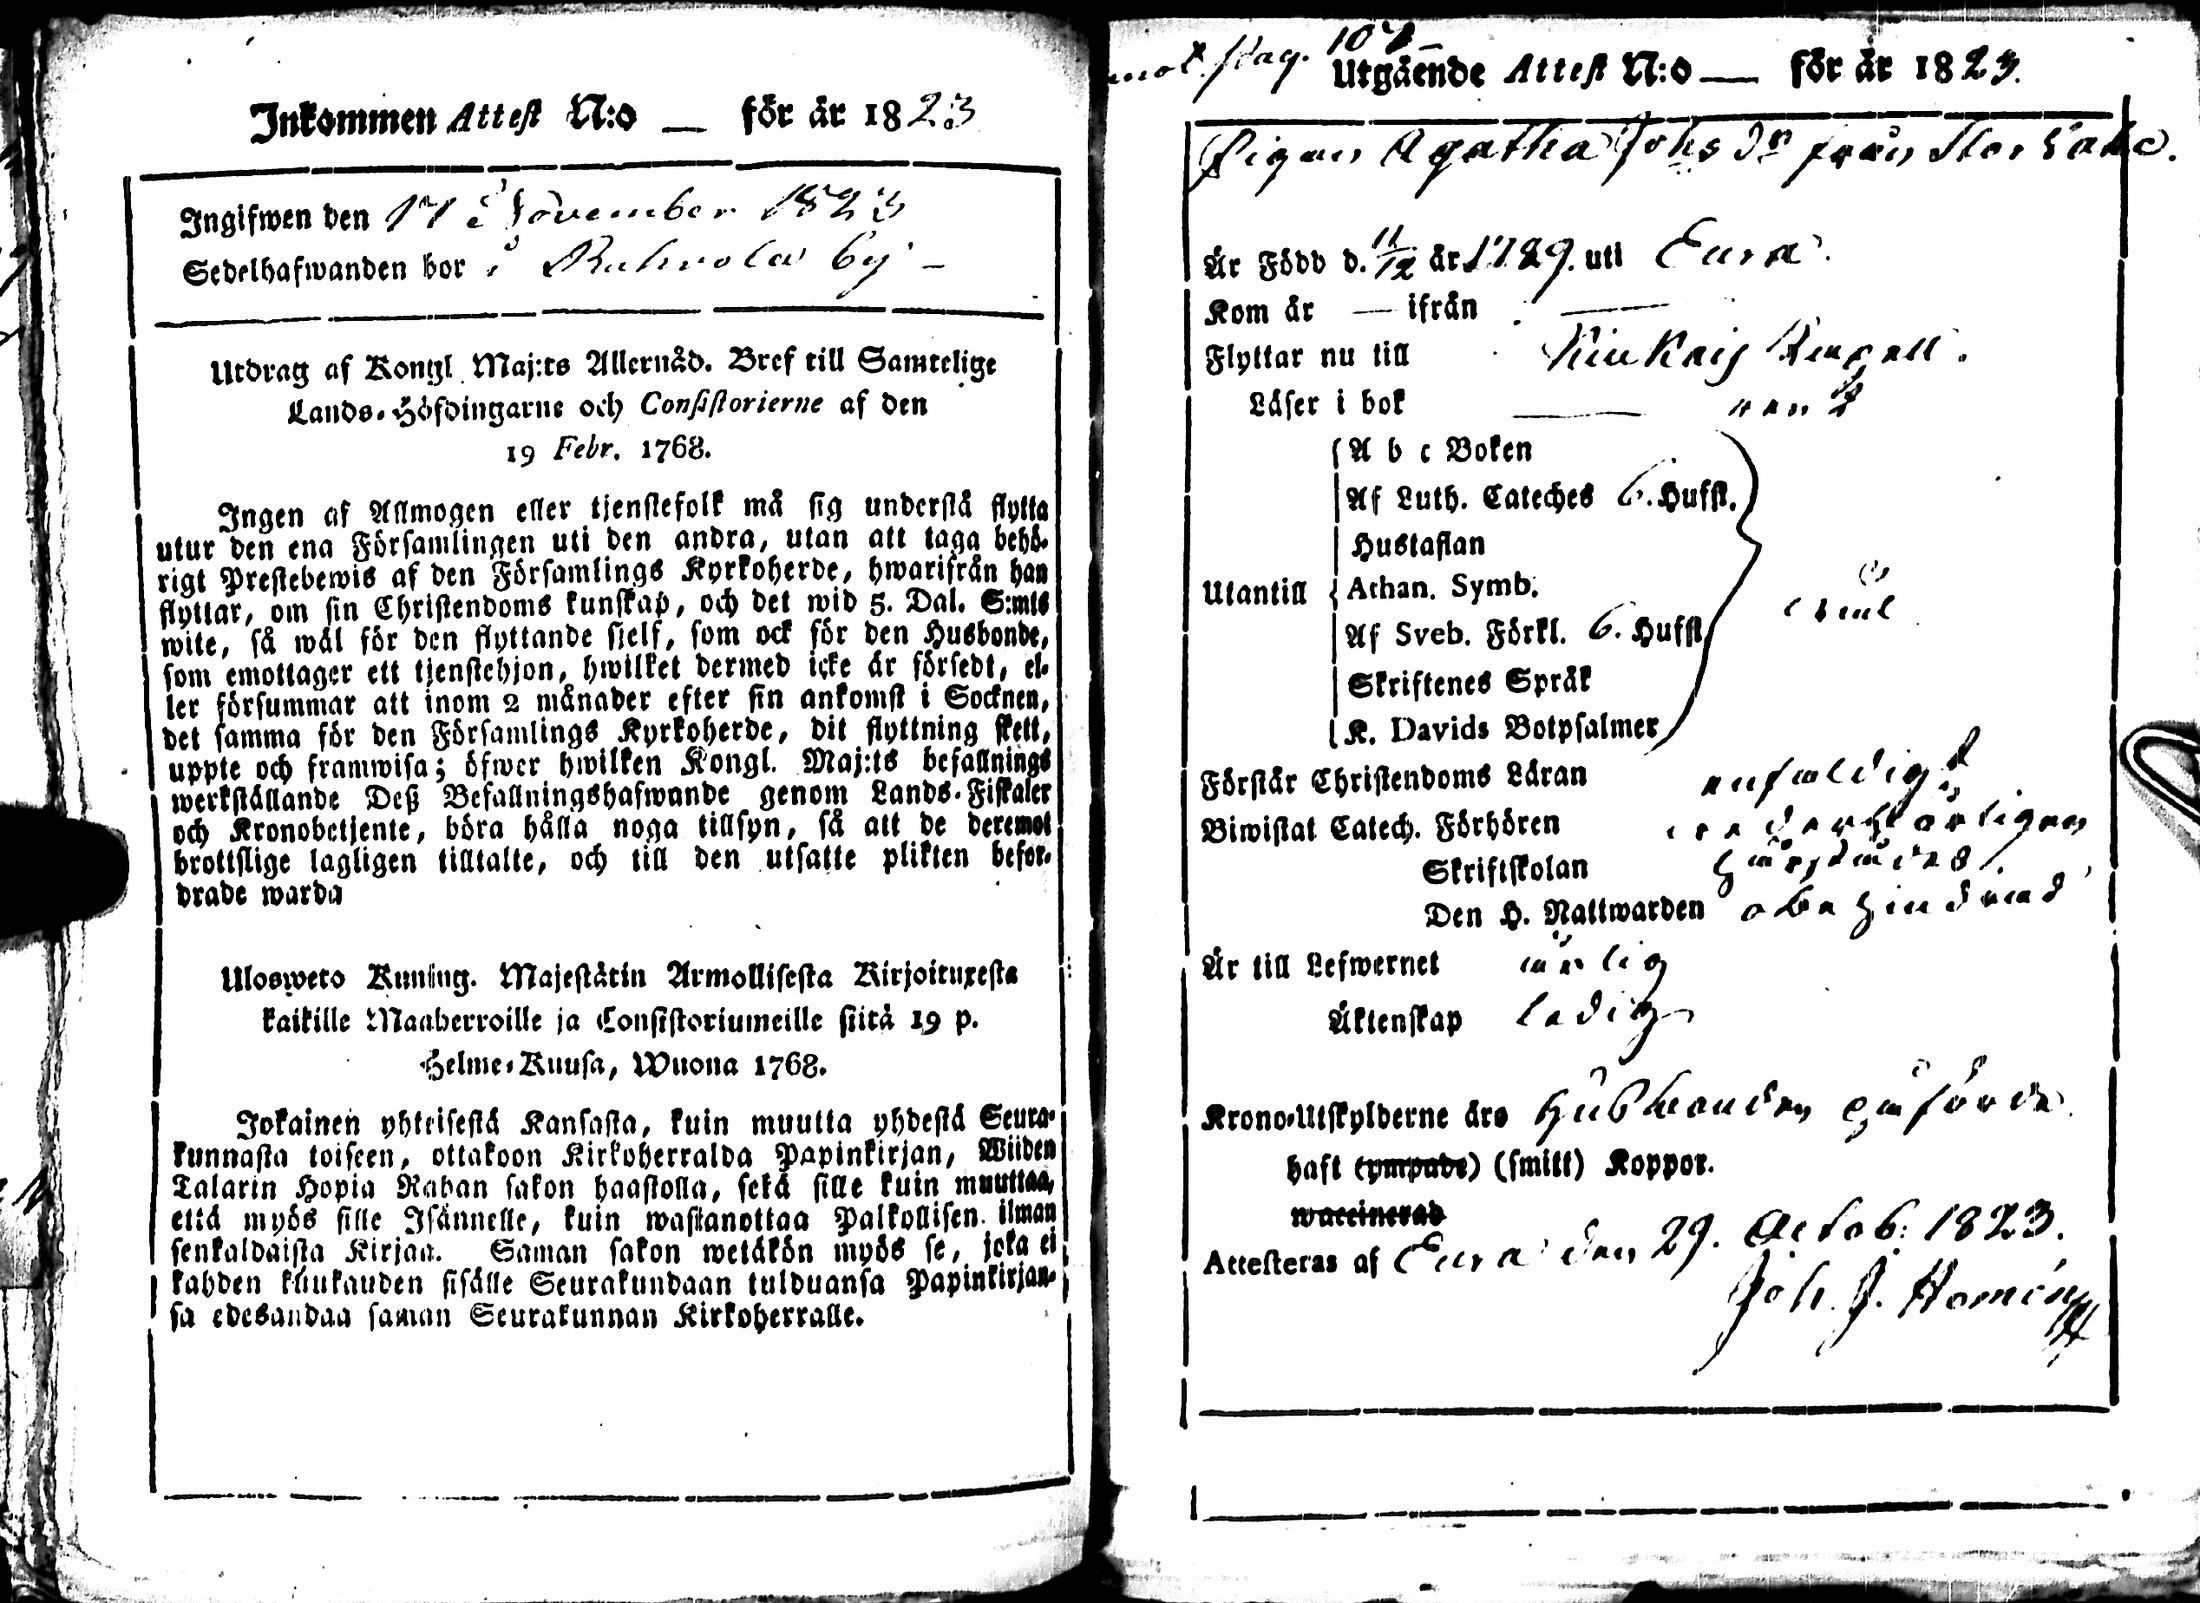 Inkommen Attest N:o — för år 1823
Ingifwen den 17 November 1823
Sedelhafwanden bor i by –
Utdrag af Kongl. Maj:ts Allernåd. Bref till Samtelige
Lands-Höfdingarne och Consistorierne af den
19 Febr. 1768.
Ingen af Allmogen eller tjenstefolk må sig understå flytta
utur den ena Församlingen uti den andra, utan att taga behö-
rigt Prestebewis af den Församlings Kyrkoherde, hwarifrån han
flyttar, om sin Christendoms kunskap, och det wid 5. Dal. S:mts
wite, så wäl för den flyttande sjelf, som ock för den Husbonde,
som emottager ett tjenstehjon, hwilket dermed icke är försedt, el-
ler försummar att inom 2 månader efter sin ankomst i Socknen,
det samma för den Församlings Kyrkoherde, dit flyttning skett,
uppte och framwisa; öfwer hwilken Kongl. Maj:ts befallnings
werkställande Deß Befallningshafwande genom Lands-Fiskaler
och Kronobetjente, böra hålla noga tillsyn, så att de deremot
brottslige lagligen tilltalte, och till den utsatte plikten befor-
drade warda
Ulosweto Kuning. Majestätin Armollisesta Kirjoituxesta
kaikille Maaherroille ja Consistoriumeille siitä 19 p.
Helme-Kuusa, Wuona 1768.
Jokainen yhteisestä Kansasta, kuin muutta yhdestä Seura-
kunnasta toiseen, ottakoon Kirkoherralda Papinkirjan, Wiiden
Talarin Hopia Rahan sakon haastolla, sekä sille kuin muuttaa,
että myös sille Isännelle, kuin wastanottaa Palkollisen ilman
senkaldaista Kirjaa. Saman sakon wetäkön myös se, joka ei
kahden kuukauden sisälle Seurakundaan tulduansa Papinkirjan-
sa edesandaa saman Seurakunnan Kirkoherralle.
pag. 107
Utgående Attest N:o — för år 1823.
Pigan Agatha Johs dr från
Är Född d. 11/12 år 1789. uti Eura.
Kom år — ifrån —
Flyttar nu till Kiukais Kapell.
Läser i bok — rent
A b c Boken
Af Luth. Cateches 6. Hufst.
Hustaflan
Utantill Athan. Symb.
Af Sveb. Förkl. 6. Hufst.
Skriftenes Språk
K. Davids Botpsalmer
Förstår Christendoms Läran enfaldigt
Biwistat Catech. Förhören wederbörligen
Skriftskolan
Den H. Nattwarden obehindrad
Är till Lefwernet ärlig
Äktenskap ledig
Krono-Utskylderne äro Husbonden påförde
haft (ympade) (smitt) Koppor.
waccinerad
Attesteras af Eura den 29. Octob: 1823.
Joh. J.